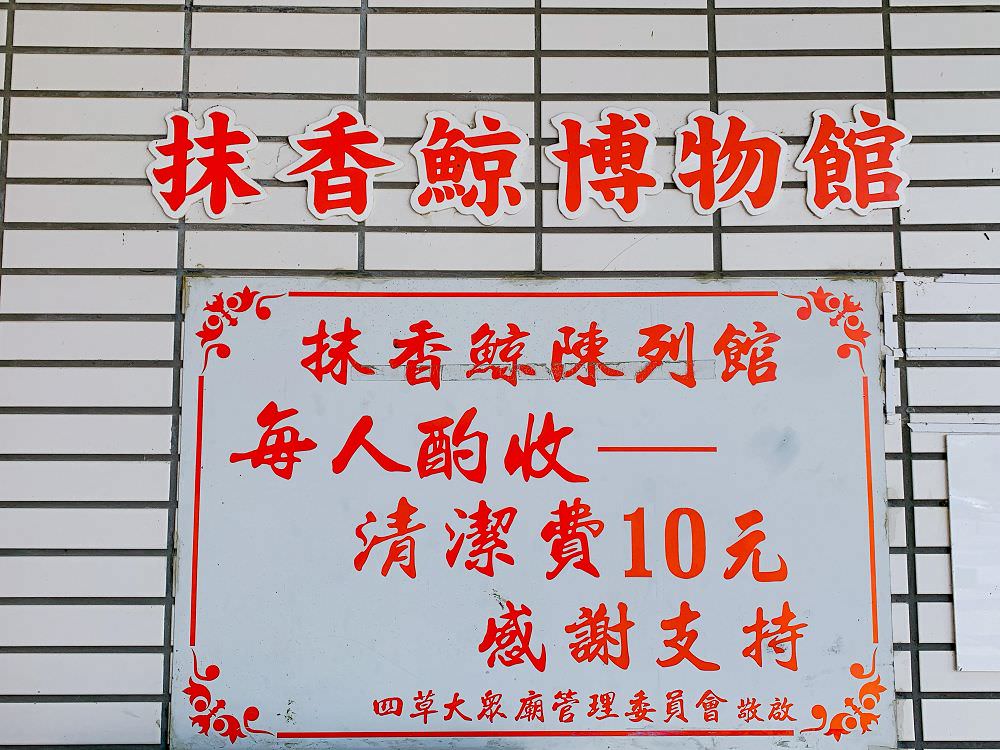 抹香鯨博物館
抹香鯨陳列館
每人酌收——
清潔費10元
感謝支持
四草大眾廟管理委員會敬啟